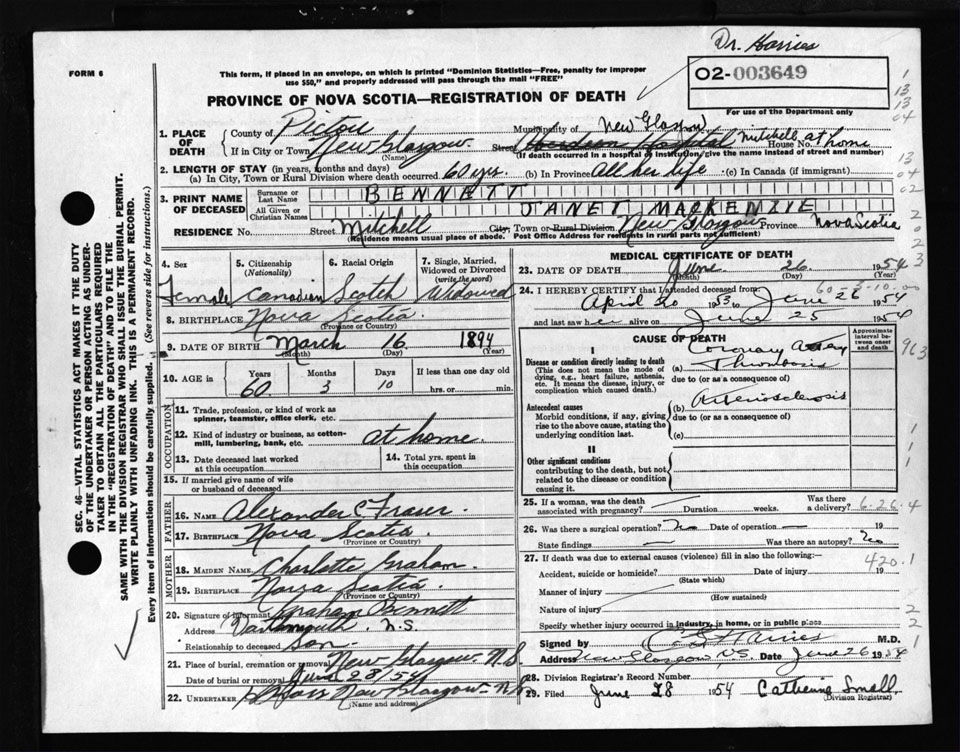 Dr. Harries
FORM 6
This form, if placed in an envelope, on which is printed "Dominion Statistics—Free, penalty for improper
use $50," and properly addressed will pass through the mail "FREE"
02-003649
PROVINCE OF NOVA SCOTIA—REGISTRATION OF DEATH
For use of the Department only
1. PLACE OF DEATH
County of Pictou
Municipality of New Glasgow
If in City or Town New Glasgow (Name)
Street Aberdeen Hospital Mitchell House No. at home
(If death occurred in a hospital or institution, give the name instead of street and number)
2. LENGTH OF STAY (in years, months and days)
(a) In City, Town or Rural Division where death occurred 60 yrs. (b) In Province All her life (c) In Canada (if immigrant)
3. PRINT NAME OF DECEASED
Surname or Last Name BENNETT
All Given or Christian Names JANET MACKENZIE
RESIDENCE No. Street Mitchell City, Town or Rural Division New Glasgow Province Nova Scotia
(Residence means usual place of abode. Post Office Address for residents in rural parts not sufficient)
4. Sex Female
5. Citizenship (Nationality) Canadian
6. Racial Origin Scotch
7. Single, Married, Widowed or Divorced (write the word) Widowed
8. BIRTHPLACE Nova Scotia
(Province or Country)
9. DATE OF BIRTH March 16 1894
(Month) (Day) (Year)
10. AGE in Years 60 Months 3 Days 10 If less than one day hrs. or min.
OCCUPATION
11. Trade, profession, or kind of work as spinner, teamster, office clerk, etc.
12. Kind of industry or business, as cotton-mill, lumbering, bank, etc. at home.
13. Date deceased last worked at this occupation
14. Total yrs. spent in this occupation
15. If married give name of wife or husband of deceased
FATHER
16. NAME Alexander C Fraser
17. BIRTHPLACE Nova Scotia
(Province or Country)
MOTHER
18. MAIDEN NAME Charlotte Graham
19. BIRTHPLACE Nova Scotia
(Province or Country)
20. Signature of informant Graham Bennett
Address Dartmouth, N.S.
Relationship to deceased son
21. Place of burial, cremation or removal New Glasgow N.S
Date of burial or removal June 28/54
22. UNDERTAKER New Glasgow - N.S.
(Name and address)
MEDICAL CERTIFICATE OF DEATH
23. DATE OF DEATH June 26 1954
(Month) (Day) (Year)
60-3-10.00
24. I HEREBY CERTIFY that I attended deceased from
April 30 1953 to June 26 1954
and last saw her alive on June 25 1954
CAUSE OF DEATH
Approximate interval between onset and death
I
Disease or condition directly leading to death
(This does not mean the mode of dying, e.g., heart failure, asthenia, etc. It means the disease, injury, or complication which caused death.)
(a) Coronary Artery Thrombosis
due to (or as a consequence of)
Antecedent causes
Morbid conditions, if any, giving rise to the above cause, stating the underlying condition last.
(b) Arteriosclerosis
due to (or as a consequence of)
(c)
II
Other significant conditions
contributing to the death, but not related to the disease or condition causing it.
25. If a woman, was the death associated with pregnancy? Duration weeks. Was there a delivery? 6-26-4
26. Was there a surgical operation? No Date of operation — 19
State findings — Was there an autopsy? No
27. If death was due to external causes (violence) fill in also the following:—
420.1
Accident, suicide or homicide? Date of injury 19
(State which)
Manner of injury
(How sustained)
Nature of injury
Specify whether injury occurred in industry, in home, or in public place
Signed by Harries M.D.
Address New Glasgow, N.S. Date June 26 1954
28. Division Registrar's Record Number
29. Filed June 28 1954 Catherine Small
(Division Registrar)
SEC. 46—VITAL STATISTICS ACT MAKES IT THE DUTY
OF THE UNDERTAKER OR PERSON ACTING AS UNDER-
TAKER TO OBTAIN ALL THE PARTICULARS REQUIRED
IN THE "REGISTRATION OF DEATH" AND TO FILE THE
SAME WITH THE DIVISION REGISTRAR WHO SHALL ISSUE THE BURIAL PERMIT.
WRITE PLAINLY WITH UNFADING INK. THIS IS A PERMANENT RECORD.
Every item of information should be carefully supplied. (See reverse side for instructions.)